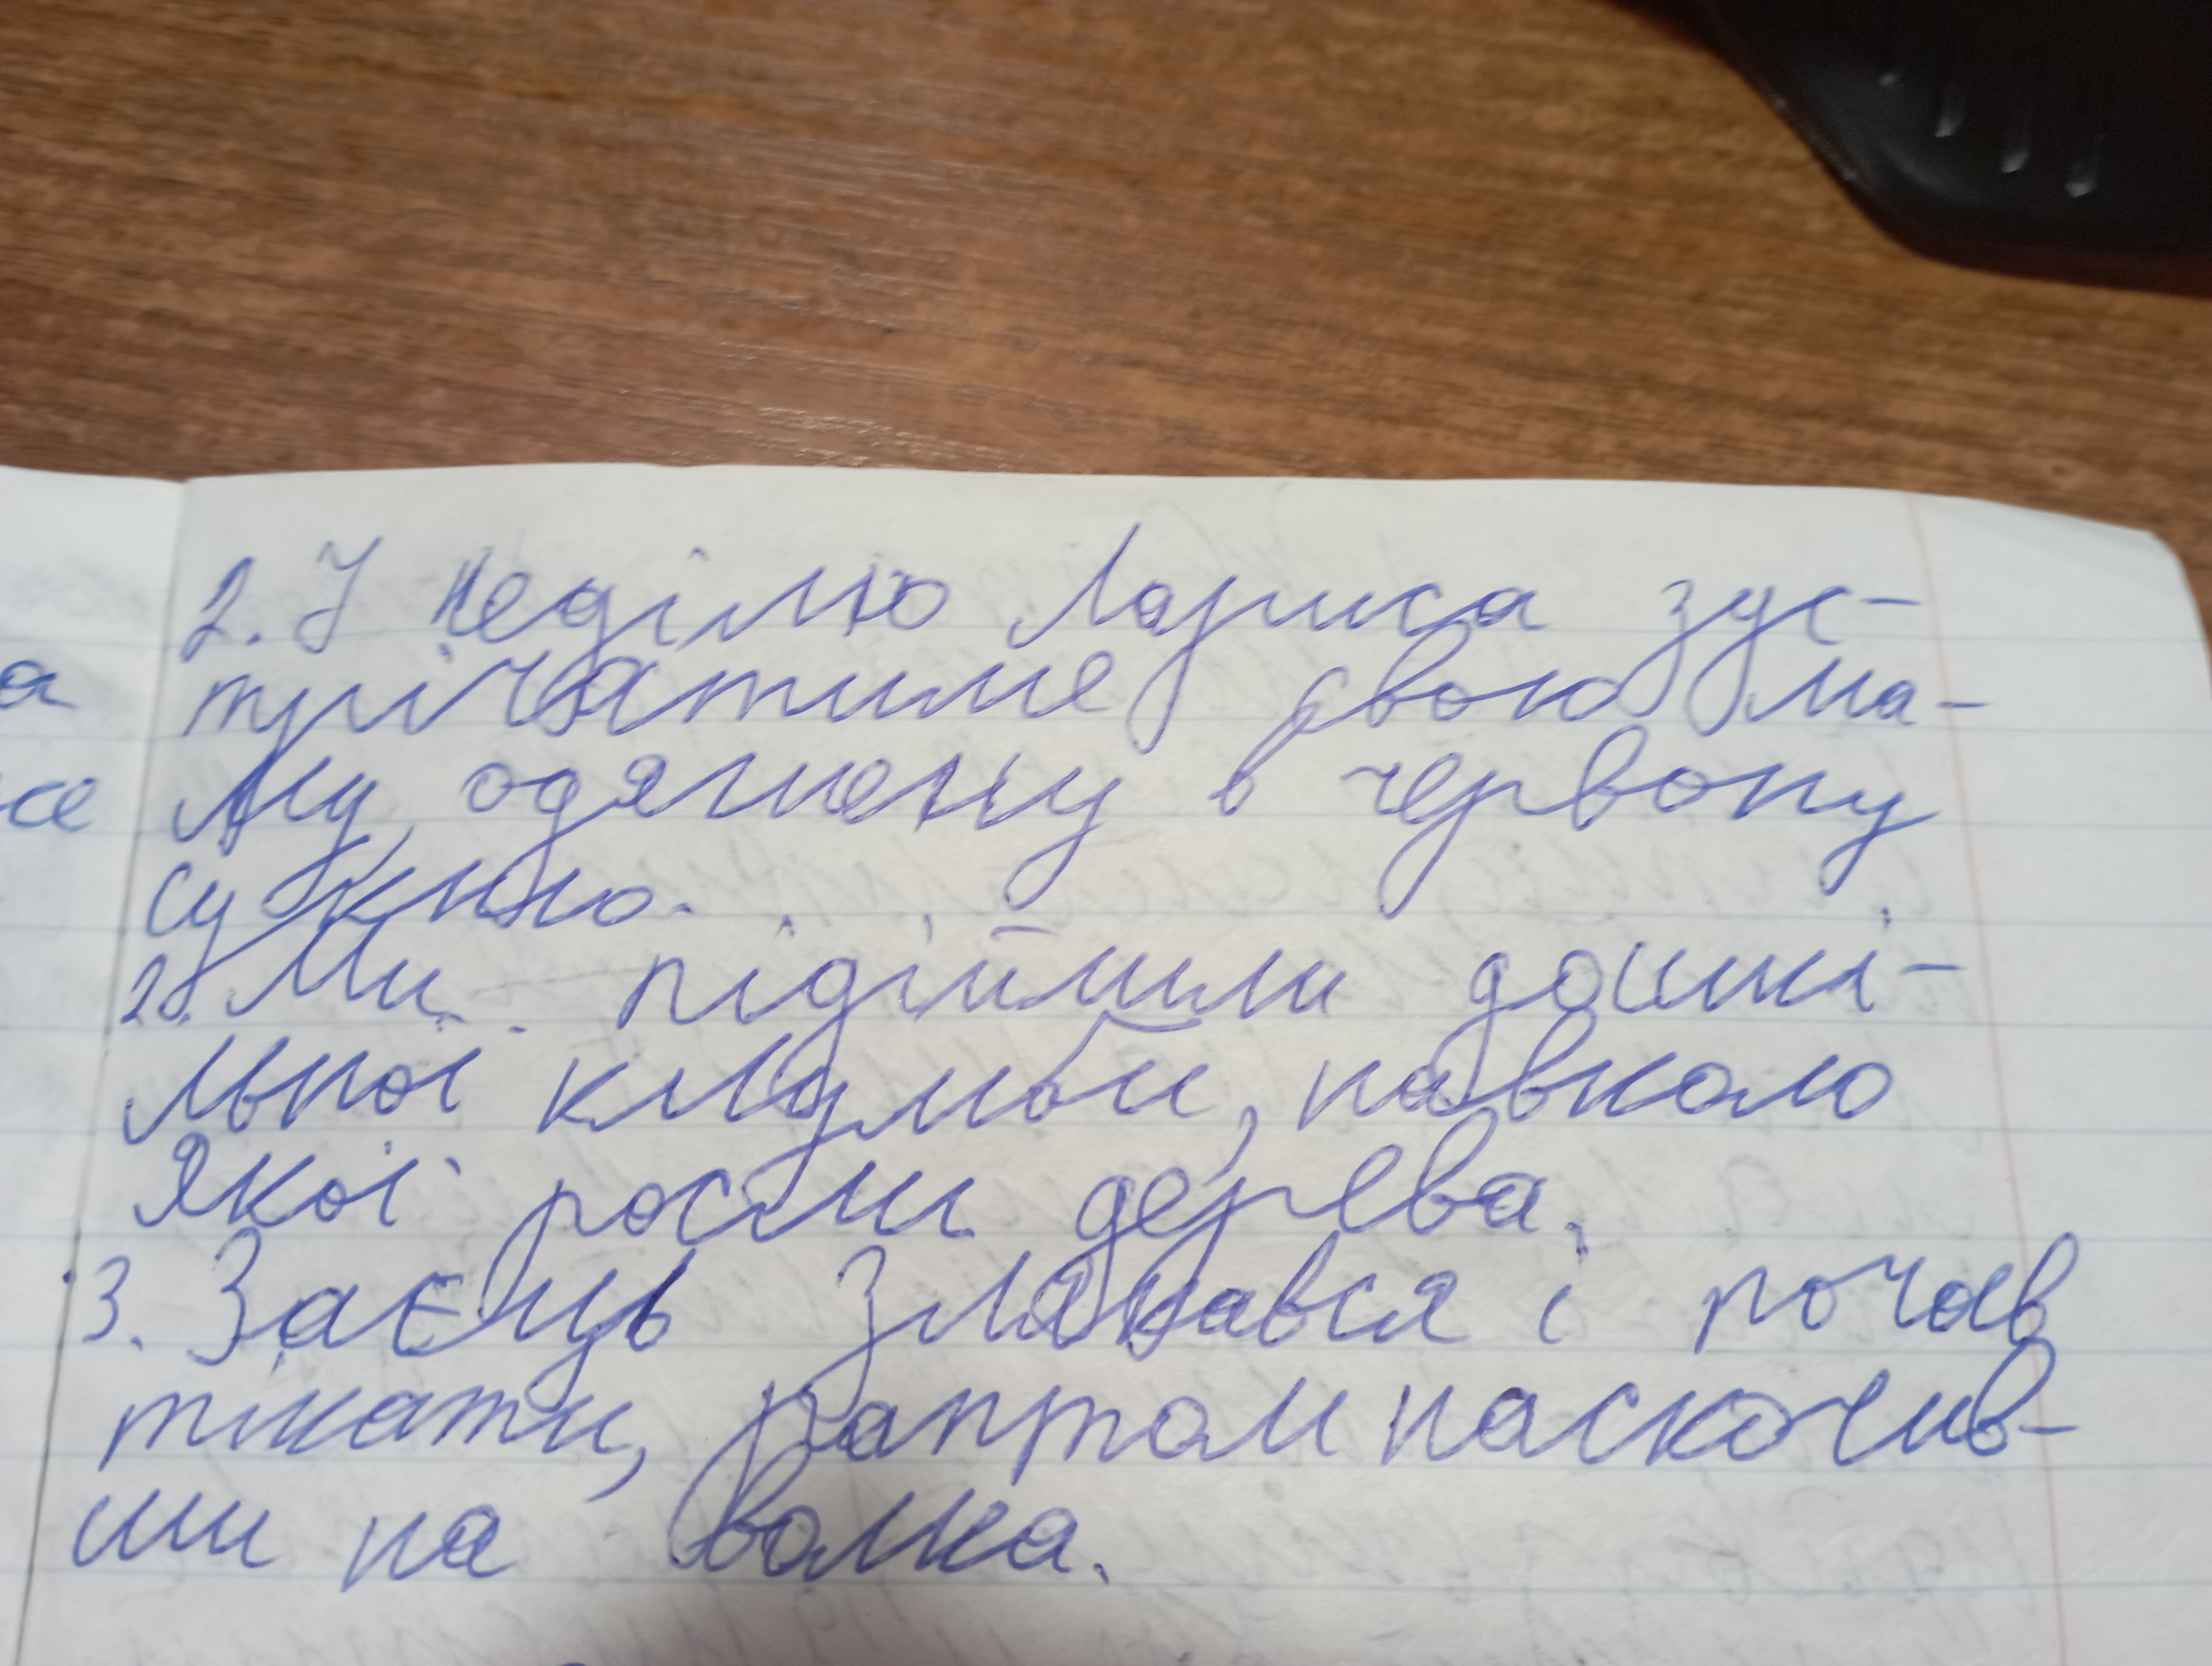 а
се
2. У неділю Лариса зус-
трічатиме свою ма-
му, одягнену в червону
сукню.
2. Ми підійшли до шкі-
льної клумби, навколо
якої росли дерева.
3. Заєць злякався і почав
тікати, раптом наскочив-
ши на волка.